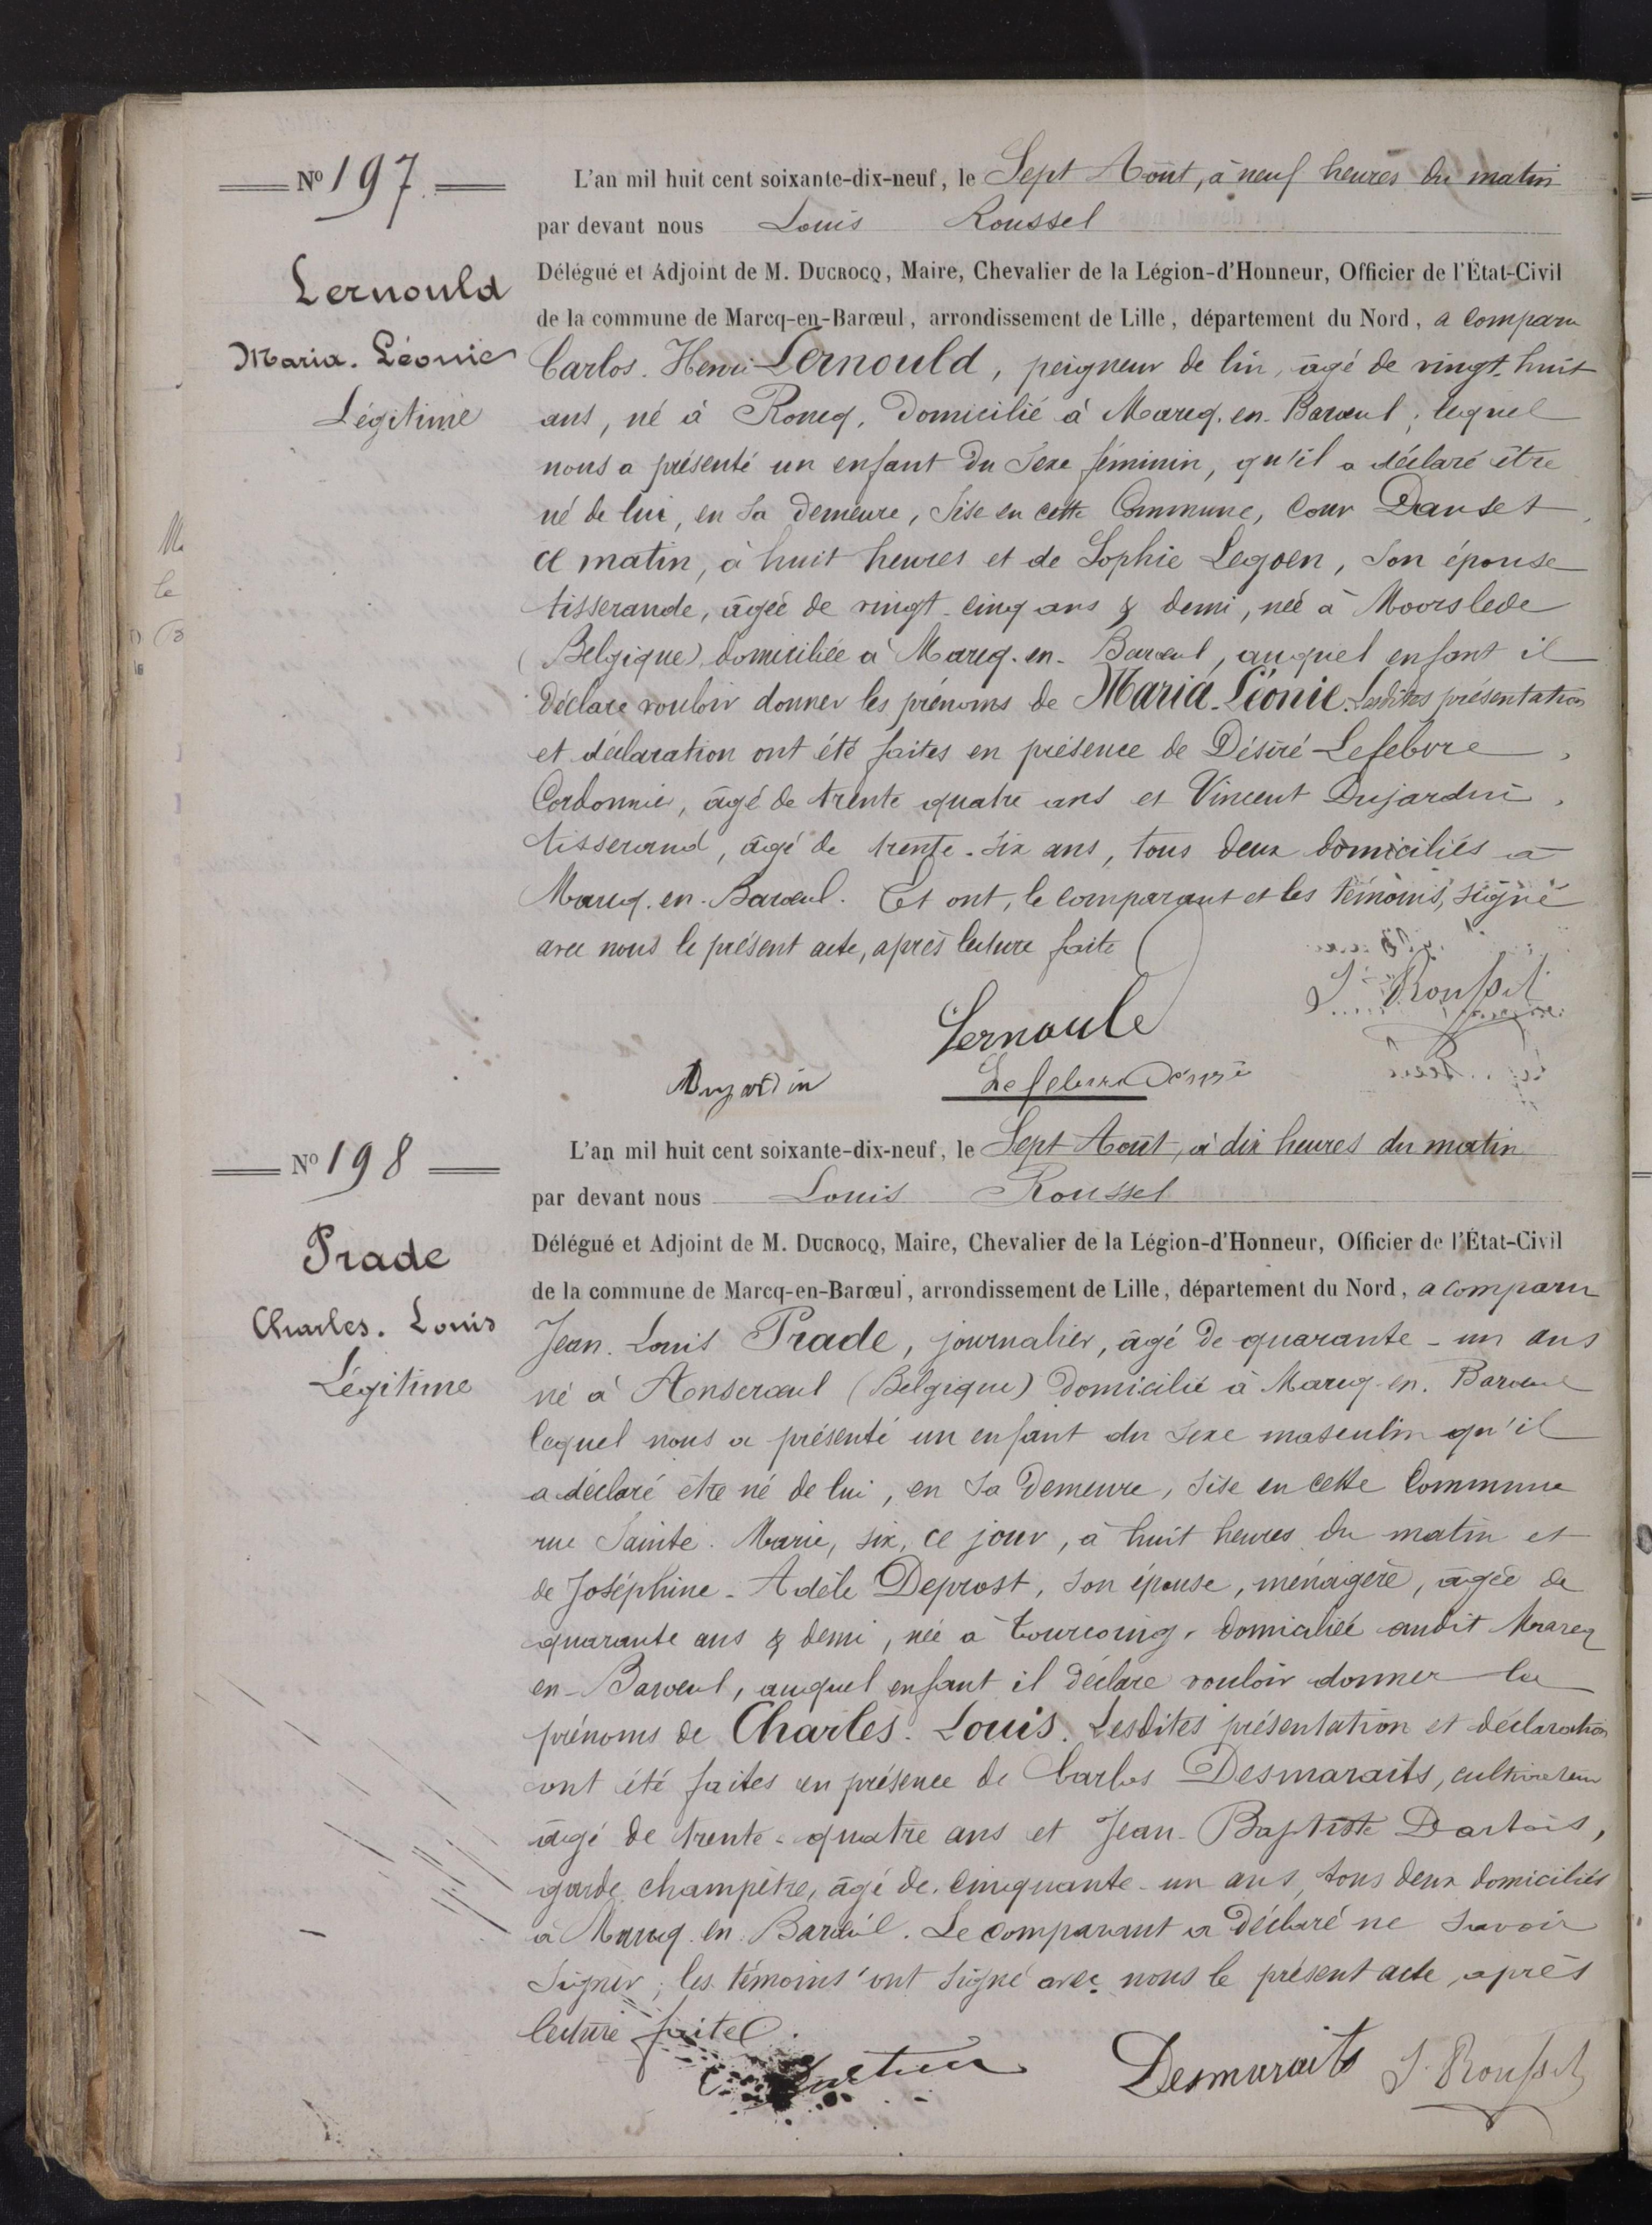 Nº 197
Lernould
Maria. Léonie
Légitime
L'an mil huit cent soixante-dix-neuf, le Sept Août, à neuf heures du matin
par devant nous Louis Roussel
Délégué et Adjoint de M. DUCROCQ, Maire, Chevalier de la Légion-d'Honneur, Officier de l'État-Civil
de la commune de Marcq-en-Barœul, arrondissement de Lille, département du Nord, a comparu
Carlos. Henri Lernould, peigneur de lin, âgé de vingt-huit
ans, né à Roncq, domicilié à Marcq-en-Barœul, lequel
nous a présenté un enfant du sexe féminin, qu'il a déclaré être
né de lui, en sa demeure, sise en cette Commune, Cour Danset
ce matin, à huit heures et de Sophie Legoen, son épouse
tisserande, âgée de vingt-cinq ans & demi, née à Moorslede
(Belgique), domiciliée à Marcq-en-Barœul, auquel enfant il
déclare vouloir donner les prénoms de Maria-Léonie. Lesdites présentation
et déclaration ont été faites en présence de Désiré Lefebvre,
Cordonnier, âgé de trente quatre ans et Vincent Dujardin,
tisserand, âgé de trente-six ans, tous deux domiciliés à
Marcq-en-Barœul. Et ont, le comparant et les témoins, signé
avec nous le présent acte, après lecture faite
L. Roussel
Lernoule
Dujardin Lefebvre Désiré
Nº 198
Prade
Charles. Louis
Légitime
L'an mil huit cent soixante-dix-neuf, le Sept Août, à dix heures du matin
par devant nous Louis Roussel
Délégué et Adjoint de M. DUCROCQ, Maire, Chevalier de la Légion-d'Honneur, Officier de l'État-Civil
de la commune de Marcq-en-Barœul, arrondissement de Lille, département du Nord, a comparu
Jean. Louis Prade, journalier, âgé de quarante-un ans
né à Anserœul (Belgique) domicilié à Marcq-en-Barœul
lequel nous a présenté un enfant du sexe masculin qu'il
a déclaré être né de lui, en sa demeure, sise en cette Commune
rue Sainte. Marie, six, ce jour, à huit heures du matin et
de Joséphine-Adèle Deprost, son épouse, ménagère, âgée de
quarante ans & demi, née à Tourcoing, domiciliée audit Marcq
en-Barœul, auquel enfant il déclare vouloir donner les
prénoms de Charles. Louis. Lesdites présentation et déclaration
ont été faites en présence de Carlos Desmaraits, cultivateur
âgé de trente-quatre ans et Jean-Baptiste Dartois,
garde champêtre, âgé de cinquante-un ans, tous deux domiciliés
à Marcq en Barœul. Le comparant a déclaré ne savoir
signer; les témoins ont signé avec nous le présent acte, après
lecture faite.
Desmaraits L. Roussel